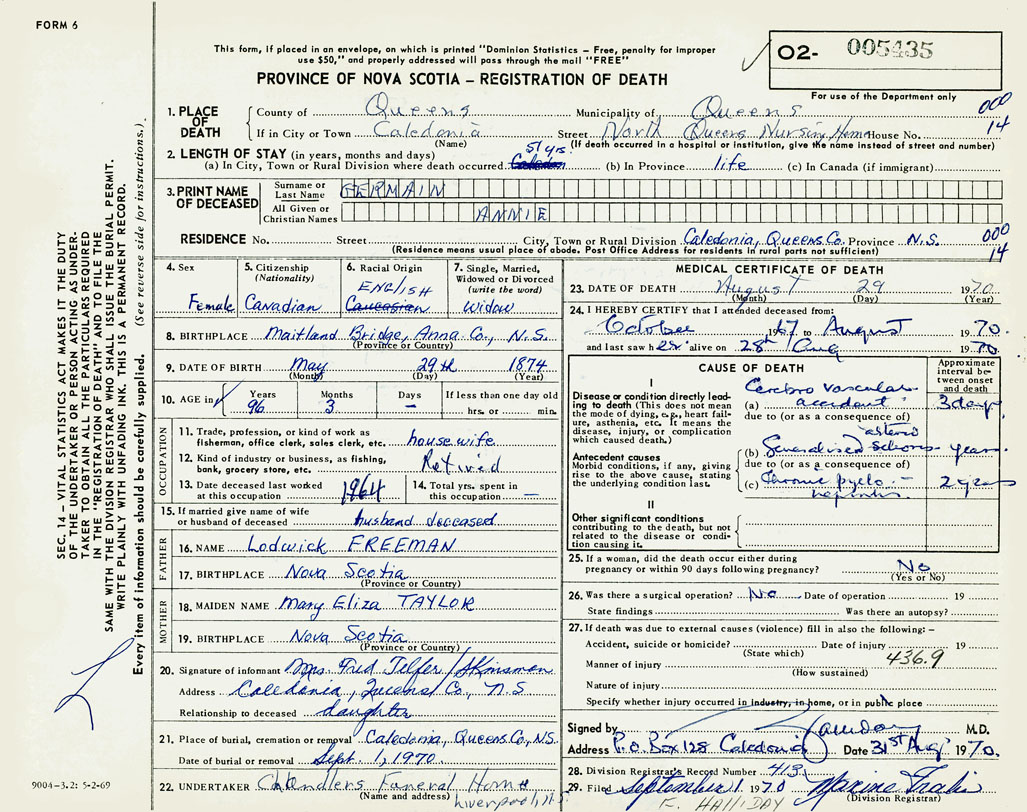 FORM 6
This form, if placed in an envelope, on which is printed "Dominion Statistics – Free, penalty for improper
use $50," and properly addressed will pass through the mail "FREE"
PROVINCE OF NOVA SCOTIA – REGISTRATION OF DEATH
O2- 005435
For use of the Department only
000
14
1. PLACE OF DEATH
County of Queens Municipality of Queens
If in City or Town Caledonia Street North Queens Nursing Home House No.
(Name) (If death occurred in a hospital or institution, give the name instead of street and number)
2. LENGTH OF STAY (in years, months and days)
51 yrs.
(a) In City, Town or Rural Division where death occurred (b) In Province life (c) In Canada (if immigrant)
3. PRINT NAME OF DECEASED
Surname or Last Name GERMAIN
All Given or Christian Names ANNIE
RESIDENCE No. Street City, Town or Rural Division Caledonia, Queens Co. Province N.S.
(Residence means usual place of abode. Post Office Address for residents in rural parts not sufficient)
000
14
4. Sex Female
5. Citizenship (Nationality) Canadian
6. Racial Origin ENGLISH Caucasian
7. Single, Married, Widowed or Divorced (write the word) Widow
8. BIRTHPLACE Maitland Bridge, Anna Co., N.S.
(Province or Country)
9. DATE OF BIRTH May 29th 1874
(Month) (Day) (Year)
10. AGE in Years 96 Months 3 Days – If less than one day old hrs. or min.
OCCUPATION
11. Trade, profession, or kind of work as fisherman, office clerk, sales clerk, etc. housewife
12. Kind of industry or business, as fishing, bank, grocery store, etc. Retired
13. Date deceased last worked at this occupation 1964
14. Total yrs. spent in this occupation –
15. If married give name of wife or husband of deceased husband deceased
FATHER
16. NAME Lodwick FREEMAN
17. BIRTHPLACE Nova Scotia
(Province or Country)
MOTHER
18. MAIDEN NAME Mary Eliza TAYLOR
19. BIRTHPLACE Nova Scotia
(Province or Country)
20. Signature of informant Mrs. Fred Telfer / AKinsman
Address Caledonia, Queens Co., N.S
Relationship to deceased daughter
21. Place of burial, cremation or removal Caledonia, Queens Co., N.S.
Date of burial or removal Sept. 1, 1970
22. UNDERTAKER Chandlers Funeral Home
(Name and address) Liverpool, N.S.
MEDICAL CERTIFICATE OF DEATH
23. DATE OF DEATH August 29 1970
(Month) (Day) (Year)
24. I HEREBY CERTIFY that I attended deceased from:
October 1967 to August 1970.
and last saw her alive on 28th Aug 1970
CAUSE OF DEATH
Approximate interval between onset and death
I
Disease or condition directly leading to death (This does not mean the mode of dying, e.g., heart failure, asthenia, etc. It means the disease, injury, or complication which caused death.)
(a) Cerebro vascular accident 3 days
due to (or as a consequence of)
Antecedent causes
Morbid conditions, if any, giving rise to the above cause, stating the underlying condition last.
(b) Generalised arterio sclerosis years
due to (or as a consequence of)
(c) Chronic pyelo-nephritis 2 years
II
Other significant conditions
contributing to the death, but not related to the disease or condition causing it.
25. If a woman, did the death occur either during pregnancy or within 90 days following pregnancy? No
(Yes or No)
26. Was there a surgical operation? No Date of operation 19
State findings Was there an autopsy?
27. If death was due to external causes (violence) fill in also the following:–
Accident, suicide or homicide? Date of injury 19
(State which) 436.9
Manner of injury
(How sustained)
Nature of injury
Specify whether injury occurred in industry, in home, or in public place
Signed by M.D.
Address P.O. Box 128 Caledonia Date 31st Aug 1970.
28. Division Registrar's Record Number 413
29. Filed September 1 1970
(Division Registrar)
F. HALLIDAY
SEC. 14 – VITAL STATISTICS ACT MAKES IT THE DUTY
OF THE UNDERTAKER OR PERSON ACTING AS UNDERTAKER TO OBTAIN ALL THE PARTICULARS REQUIRED
IN THE "REGISTRATION OF DEATH" AND TO FILE THE
SAME WITH THE DIVISION REGISTRAR WHO SHALL ISSUE THE BURIAL PERMIT.
WRITE PLAINLY WITH UNFADING INK. THIS IS A PERMANENT RECORD.
Every item of information should be carefully supplied. (See reverse side for instructions.)
9004-3.2: 5-2-69